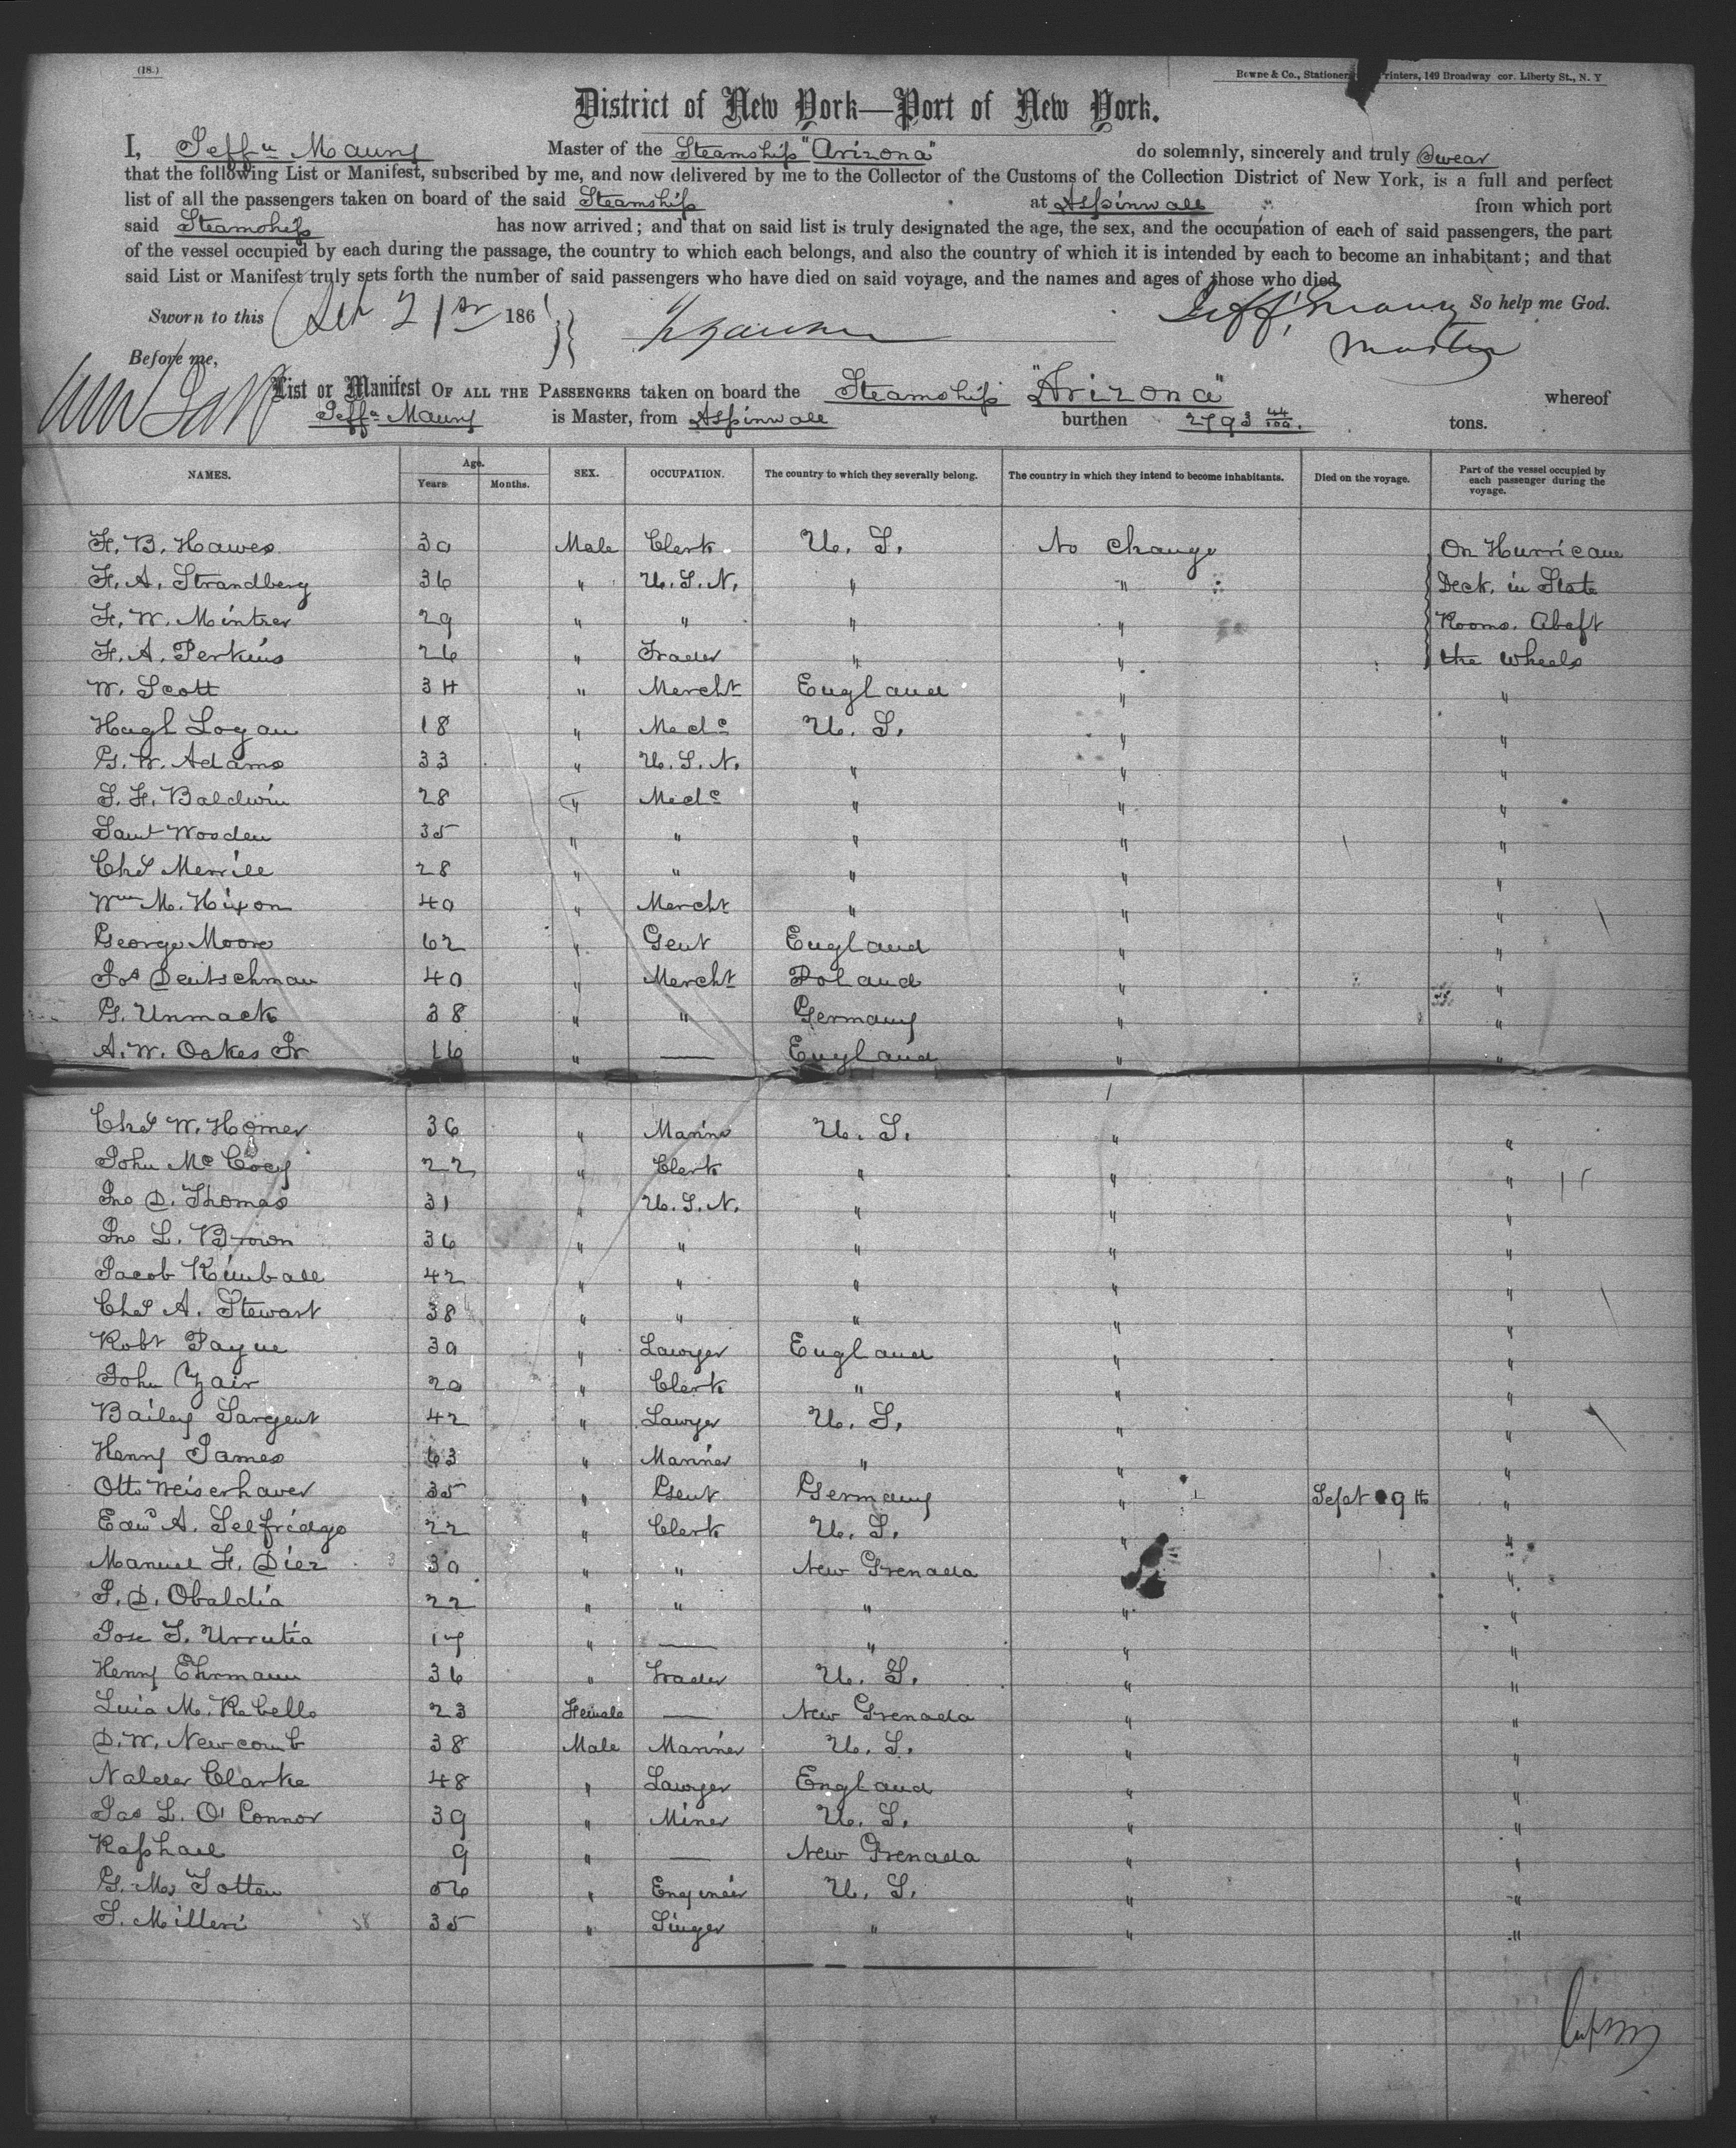 (18.)
Bowne & Co., Stationers Printers, 149 Broadway cor. Liberty St., N. Y
District of New York—Port of New York.
I, Jeffn Maury Master of the Steamship "Arizona" do solemnly, sincerely and truly Swear
that the following List or Manifest, subscribed by me, and now delivered by me to the Collector of the Customs of the Collection District of New York, is a full and perfect
list of all the passengers taken on board of the said Steamship at Aspinwall from which port
said Steamship has now arrived; and that on said list is truly designated the age, the sex, and the occupation of each of said passengers, the part
of the vessel occupied by each during the passage, the country to which each belongs, and also the country of which it is intended by each to become an inhabitant; and that
said List or Manifest truly sets forth the number of said passengers who have died on said voyage, and the names and ages of those who died.
Sworn to this 21st 186 Jeff. Maury So help me God.
Before me, Master
List or Manifest OF ALL THE PASSENGERS taken on board the Steamship "Arizona" whereof
Jeffn Maury is Master, from Aspinwall burthen 2793 44/100. tons.
NAMES. Age. Years Months. SEX. OCCUPATION. The country to which they severally belong. The country in which they intend to become inhabitants. Died on the voyage. Part of the vessel occupied by each passenger during the voyage.
F. B. Hawes 30 Male Clerk U. S. No change On Hurricane
F. A. Strandberg 36 " U.S.N. " " Deck. in State
F. W. Mintzer 29 " " " " Rooms. Abaft
F. A. Perkins 26 " Trader " " the wheels
W. Scott 34 " Mercht England " "
Hugh Logan 18 " Mechc U. S. " "
G. W. Adams 33 " U.S.N. " " "
J. F. Baldwin 28 " Mechc " " "
Saml Wooden 35 " " " " "
Chs Merrill 28 " " " " "
Wm M. Hixon 40 " Mercht " " "
George Moore 62 " Gent England " "
Jos Deutschman 40 " Mercht Poland " "
G. Unmack 38 " " Germany " "
A. W. Oakes Jr 16 " — England " "
Chs W. Homer 36 " Marine U. S. " "
John Mc Coey 22 " Clerk " " "
Jno D. Thomas 31 " U.S.N. " " "
Jno L. Brown 36 " " " " "
Jacob Kimball 42 " " " " "
Chs A. Stewart 38 " " " " "
Robt Payne 30 " Lawyer England " "
John 20 " Clerk " " "
Bailey Sargent 42 " Lawyer U. S. " "
Henry James 63 " Mariner " " "
Otto Weiserhaver 35 " Gent Germany " Sept 9th "
Edwd A. Selfridge 22 " Clerk U. S. " "
Manuel F. Diez 30 " " New Grenada " "
J. D. Obaldia 22 " " " " "
Jose J. Urrutia 17 " — " " "
Henry Ehrmann 36 " Trader U. S. " "
Luia M. Rebello 23 Female — New Grenada " "
D. W. Newcomb 38 Male Mariner U. S. " "
Nalder Clarke 48 " Lawyer England " "
Jas L. O'Connor 39 " Miner U. S. " "
Raphael 9 " — New Grenada " "
G. M. Totten 56 " Engineer U. S. " "
S. Milleri 35 " Singer " " "